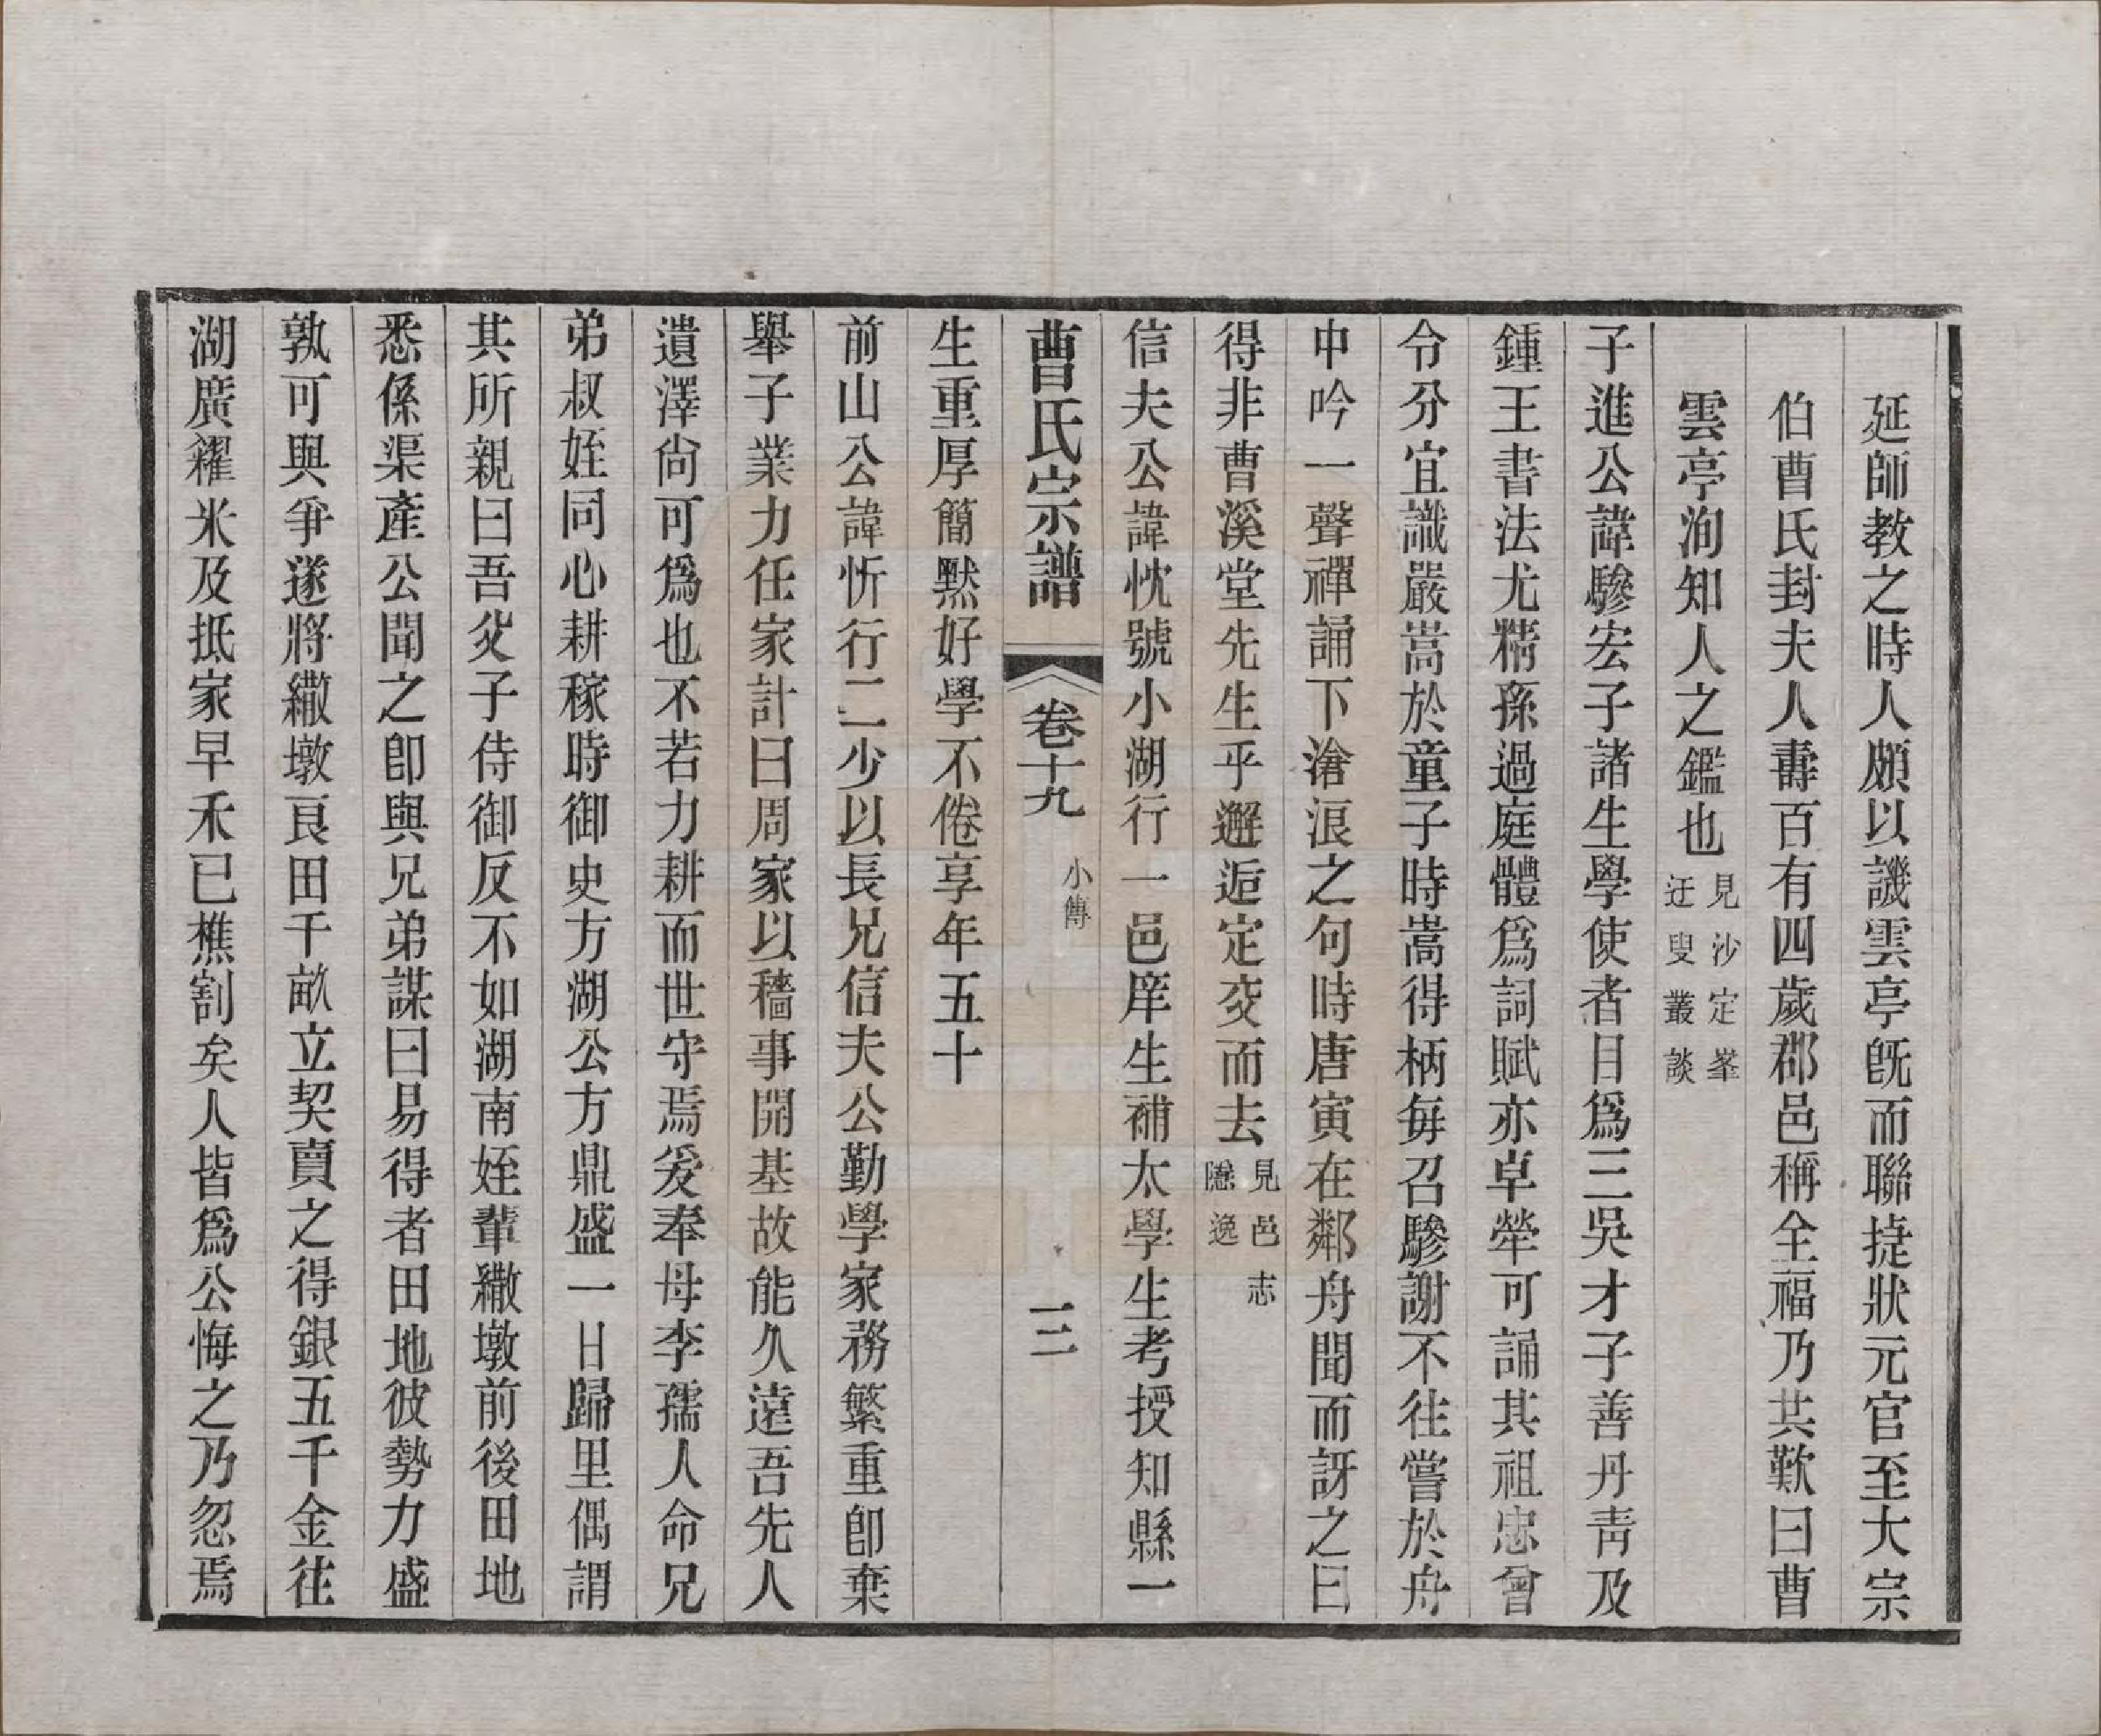 延師教之時人頗以譏雲亭旣而聯捷狀元官至大宗
伯曹氏封夫人壽百有四歲郡邑稱全福乃共歎曰曹
雲亭洵知人之鑑也見沙定峯迂叟叢談
子進公諱驂宏子諸生學使者目爲三吳才子善丹靑及
鍾王書法尤精孫過庭體爲詞賦亦卓犖可誦其祖忠曾
令分宜識嚴嵩於童子時嵩得柄每召驂謝不往嘗於舟
中吟一聲禪誦下滄浪之句時唐寅在鄰舟聞而訝之曰
得非曹溪堂先生乎邂逅定交而去見邑志隱逸
信夫公諱忱號小湖行一邑庠生補太學生考授知縣一
曹氏宗譜 卷十九 小傳 一二
生重厚簡默好學不倦享年五十
前山公諱忻行二少以長兄信夫公勤學家務繁重卽棄
舉子業力任家計曰周家以穡事開基故能久遠吾先人
遺澤尙可爲也不若力耕而世守焉爰奉母李孺人命兄
弟叔姪同心耕稼時御史方湖公方鼎盛一日歸里偶謂
其所親曰吾父子侍御反不如湖南姪輩繖墩前後田地
悉係渠產公聞之卽與兄弟謀曰易得者田地彼勢力盛
孰可與爭遂將繖墩良田千畝立契賣之得銀五千金往
湖廣糴米及抵家早禾已樵割矣人皆爲公悔之乃忽焉